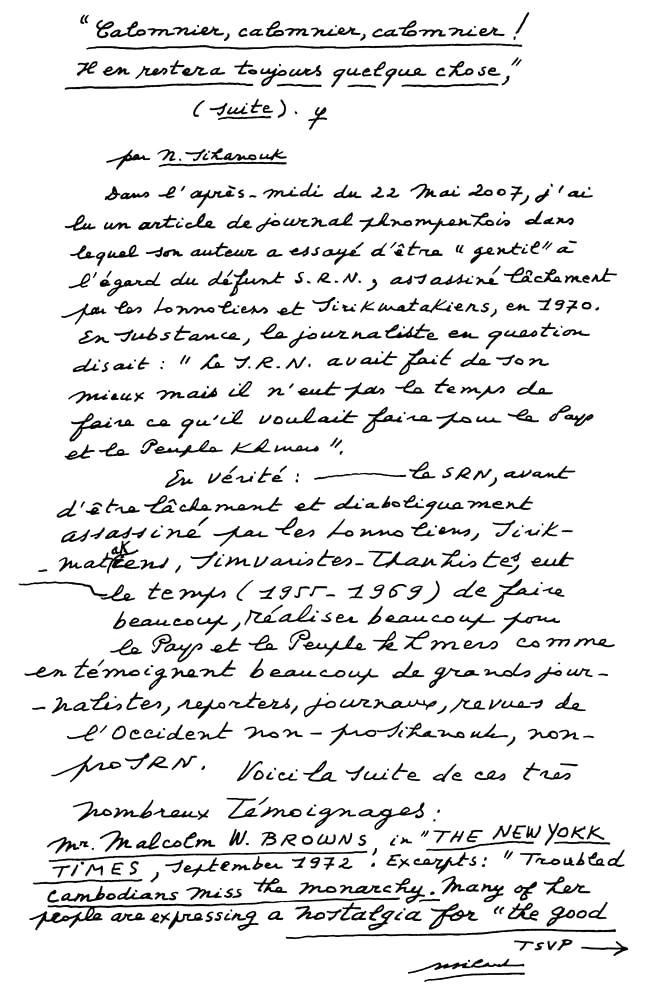 "Calomnier, calomnier, calomnier !
Il en restera toujours quelque chose,"
(suite).
par N. Sihanouk
Dans l'après-midi du 22 Mai 2007, j'ai
lu un article de journal phnompenhois dans
lequel son auteur a essayé d'être "gentil" à
l'égard du défunt S.R.N., assassiné lâchement
par les Lonnoliens et Sirikmatakiens, en 1970.
En substance, le journaliste en question
disait : "Le S.R.N. avait fait de son
mieux mais il n'eut pas le temps de
faire ce qu'il voulait faire pour le Pays
et le Peuple Khmers".
En vérité : le SRN, avant
d'être lâchement et diaboliquement
assassiné par les Lonnoliens, Sirik-
-matakiens, Simvaristes-Thanhistes, eut
le temps (1955-1969) de faire
beaucoup, réaliser beaucoup pour
le Pays et le Peuple khmers comme
en témoignent beaucoup de grands jour-
-nalistes, reporters, journaux, revues de
l'Occident non-proSihanouk, non-
proSRN. Voici la suite de ces très
nombreux Témoignages :
Mr. Malcolm W. BROWNS, in "THE NEW YORK
TIMES, September 1972. Excerpts : "Troubled
Cambodians miss the monarchy. Many of her
people are expressing a nostalgia for "the good
TSVP →